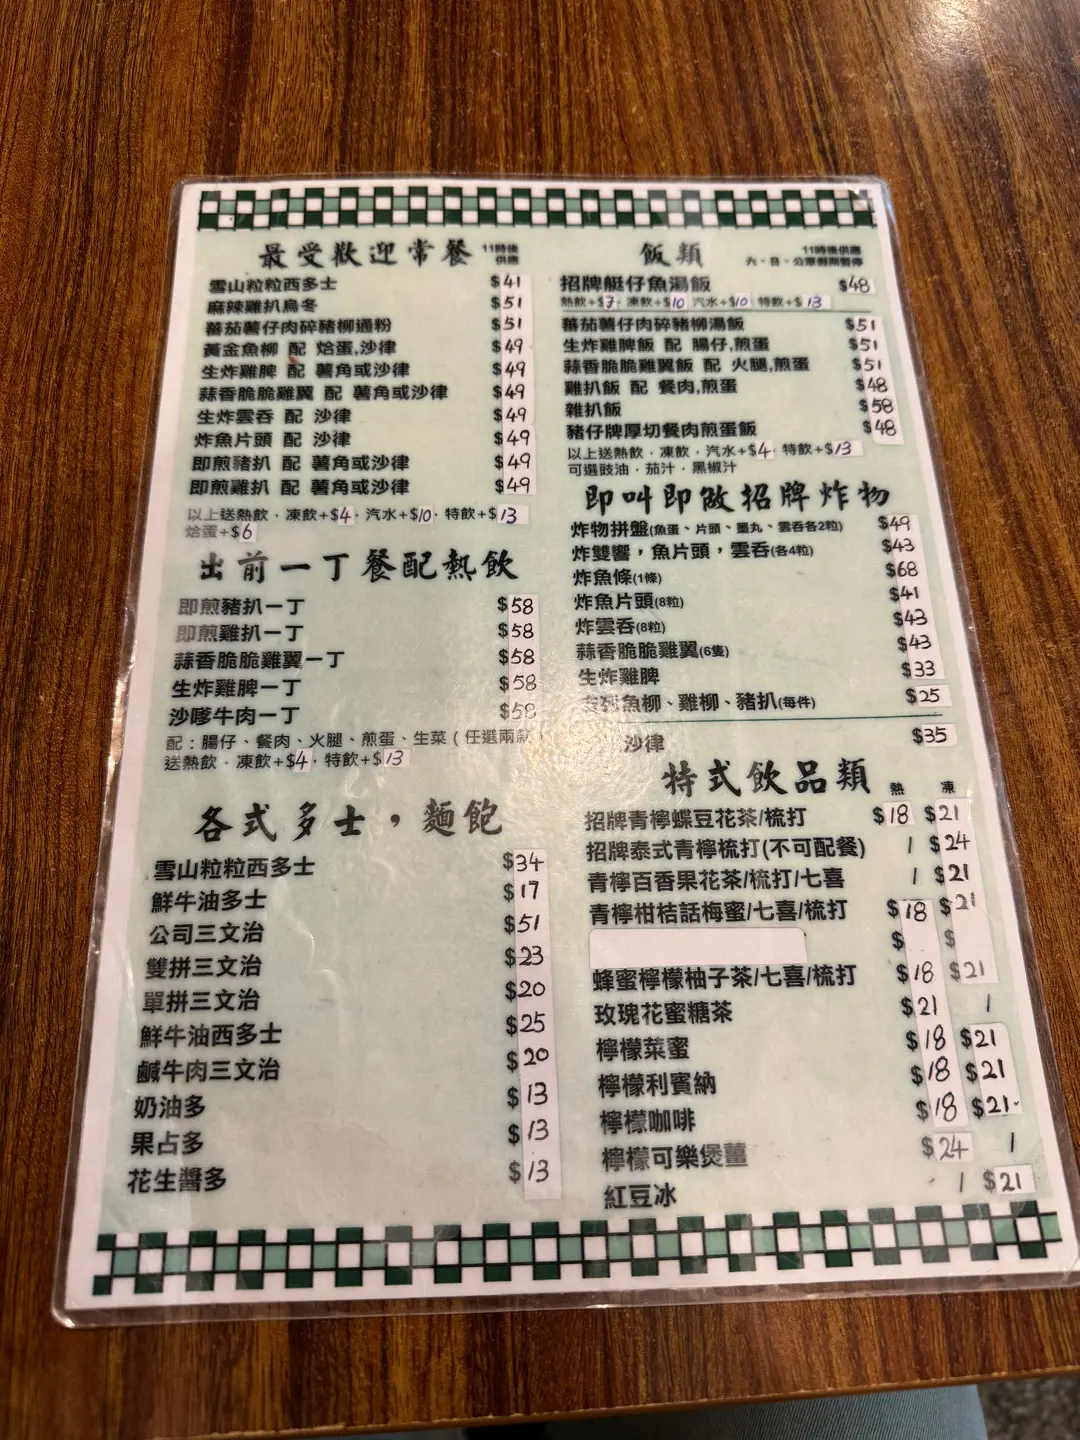 最受歡迎常餐 11時後供應
雪山粒粒西多士 $41
麻辣雞扒烏冬 $51
蕃茄薯仔肉碎豬柳通粉 $51
黃金魚柳 配 烚蛋,沙律 $49
生炸雞脾 配 薯角或沙律 $49
蒜香脆脆雞翼 配 薯角或沙律 $49
生炸雲吞 配 沙律 $49
炸魚片頭 配 沙律 $49
即煎豬扒 配 薯角或沙律 $49
即煎雞扒 配 薯角或沙律 $49
以上送熱飲．凍飲+$4．汽水+$10．特飲+$13
烚蛋+$6
出前一丁餐配熱飲
即煎豬扒一丁 $58
即煎雞扒一丁 $58
蒜香脆脆雞翼一丁 $58
生炸雞脾一丁 $58
沙嗲牛肉一丁 $58
配：腸仔、餐肉、火腿、煎蛋、生菜（任選兩款）
送熱飲．凍飲+$4．特飲+$13
各式多士，麵飽
雪山粒粒西多士 $34
鮮牛油多士 $17
公司三文治 $51
雙拼三文治 $23
單拼三文治 $20
鮮牛油西多士 $25
鹹牛肉三文治 $20
奶油多 $13
果占多 $13
花生醬多 $13
飯類 11時後供應
六、日、公眾假期暫停
招牌艇仔魚湯飯 $48
熱飲+$7．凍飲+$10 汽水+$10 特飲+$13
蕃茄薯仔肉碎豬柳湯飯 $51
生炸雞脾飯 配 腸仔,煎蛋 $51
蒜香脆脆雞翼飯 配 火腿,煎蛋 $51
雞扒飯 配 餐肉,煎蛋 $48
雜扒飯 $58
豬仔牌厚切餐肉煎蛋飯 $48
以上送熱飲．凍飲．汽水+$4．特飲+$13
可選豉油．茄汁．黑椒汁
即叫即做招牌炸物
炸物拼盤(魚蛋、片頭、墨丸、雲吞各2粒) $49
炸雙響，魚片頭，雲吞(各4粒) $43
炸魚條(1條) $68
炸魚片頭(8粒) $41
炸雲吞(8粒) $43
蒜香脆脆雞翼(6隻) $43
生炸雞脾 $33
魚柳、雞柳、豬扒(每件) $25
沙律 $35
特式飲品類 熱 凍
招牌青檸蝶豆花茶/梳打 $18 $21
招牌泰式青檸梳打(不可配餐) / $24
青檸百香果花茶/梳打/七喜 / $21
青檸柑桔話梅蜜/七喜/梳打 $18 $21
$ $
蜂蜜檸檬柚子茶/七喜/梳打 $18 $21
玫瑰花蜜糖茶 $21 /
檸檬菜蜜 $18 $21
檸檬利賓納 $18 $21
檸檬咖啡 $18 $21
檸檬可樂煲薑 $24 /
紅豆冰 / $21